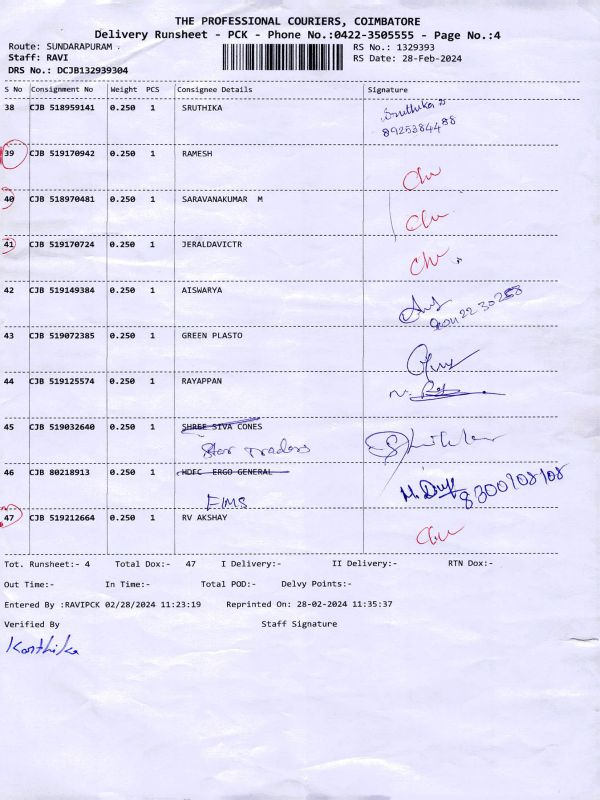 THE PROFESSIONAL COURIERS, COIMBATORE
Delivery Runsheet - PCK - Phone No.:0422-3505555 - Page No.:4
Route: SUNDARAPURAM . RS No.: 1329393
Staff: RAVI RS Date: 28-Feb-2024
DRS No.: DCJB132939304
S No Consignment No Weight PCS Consignee Details Signature
38 CJB 518959141 0.250 1 SRUTHIKA Sruthika
8925384488
39 CJB 519170942 0.250 1 RAMESH
40 CJB 518970481 0.250 1 SARAVANAKUMAR M
41 CJB 519170724 0.250 1 JERALDAVICTR
42 CJB 519149384 0.250 1 AISWARYA
43 CJB 519072385 0.250 1 GREEN PLASTO
44 CJB 519125574 0.250 1 RAYAPPAN
45 CJB 519032640 0.250 1 SHREE SIVA CONES
Star Traders
46 CJB 80218913 0.250 1 HDFC ERGO GENERAL
8300908108
FIMS
47 CJB 519212664 0.250 1 RV AKSHAY
Tot. Runsheet:- 4 Total Dox:- 47 I Delivery:- II Delivery:- RTN Dox:-
Out Time:- In Time:- Total POD:- Delvy Points:-
Entered By :RAVIPCK 02/28/2024 11:23:19 Reprinted On: 28-02-2024 11:35:37
Verified By Staff Signature
Karthika